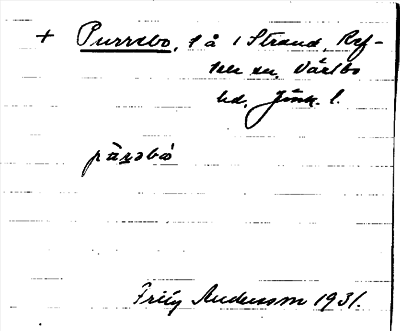 + Purrebo, t å i Strand, Ref-
tele sn, Västbo
hd, Jönk. l.
pùrəbo
Fritz Andersson 1931.